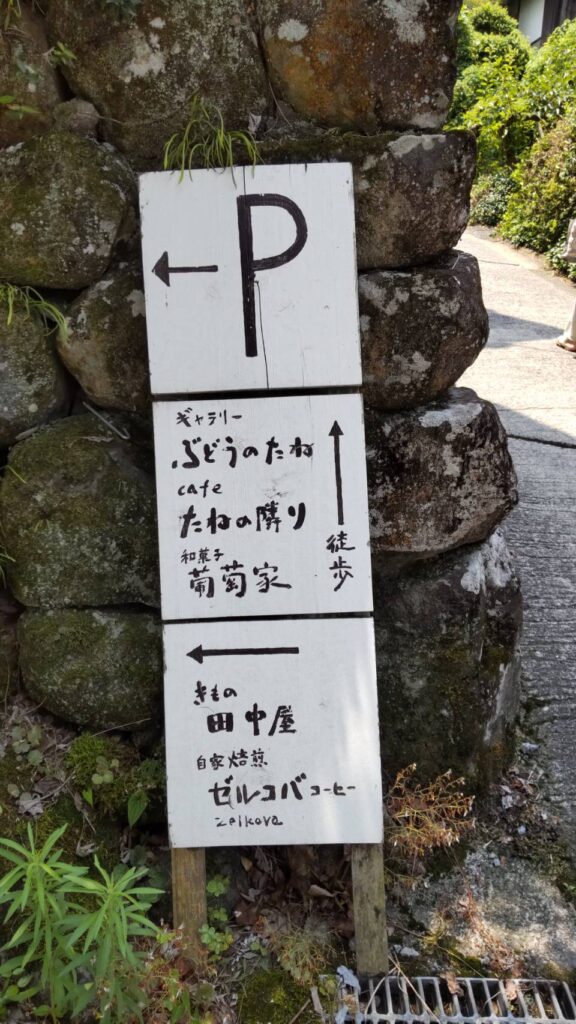 P
ギャラリー
ぶどうのたね
cafe
たねの隣り
和菓子
葡萄家
徒歩
きもの
田中屋
自家焙煎
ゼルコバコーヒー
zelkova